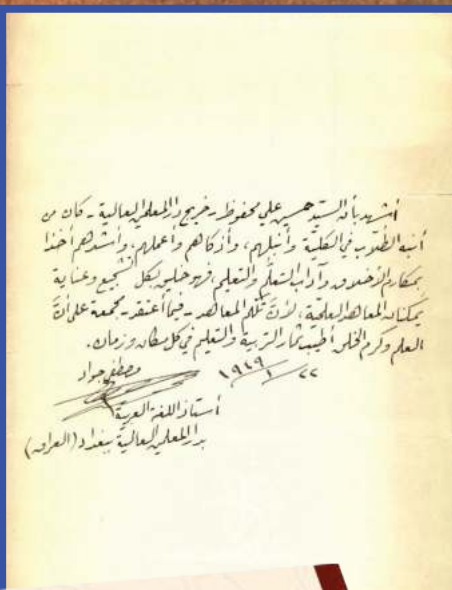 أشهد بأن السيد حسين علي محفوظ - خريج دار المعلمين العالية - كان من
أنبه الطلاب في الكلية وأنبلهم، وأذكاهم وأعملهم، وأشدهم أخذا
بمكارم الأخلاق وآداب التعلم والتعليم، فهو خليق بكل تشجيع وعناية
المعاهد العلمية، لأن تلكم المعاهد - فيما أعتقد - مجمعة على أن
العلم وكرم الخلق أطيب ثمار التربية والتعليم في كل مكان وزمان.
مصطفى جواد
٢٢ / ١ / ١٩٤٩
أستاذ اللغة العربية
بدار المعلمين العالية ببغداد (العراق)